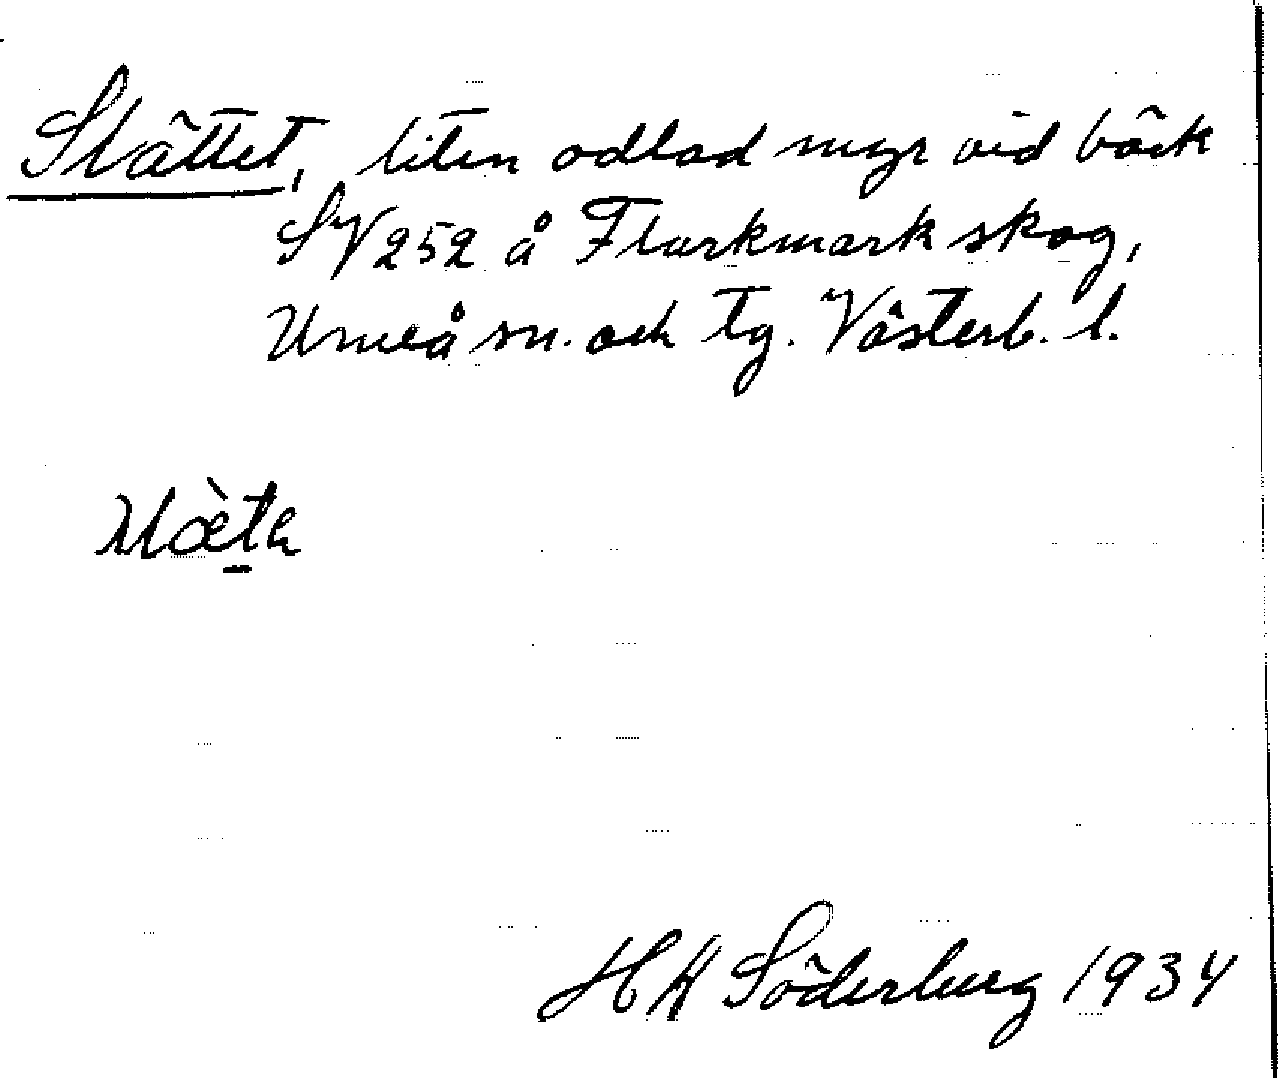 Slättet, liten odlad myr vid bäck
SV 252 å Flurkmark skog,
Umeå sn. och tg. Västerb. l.
H A Söderberg 1934